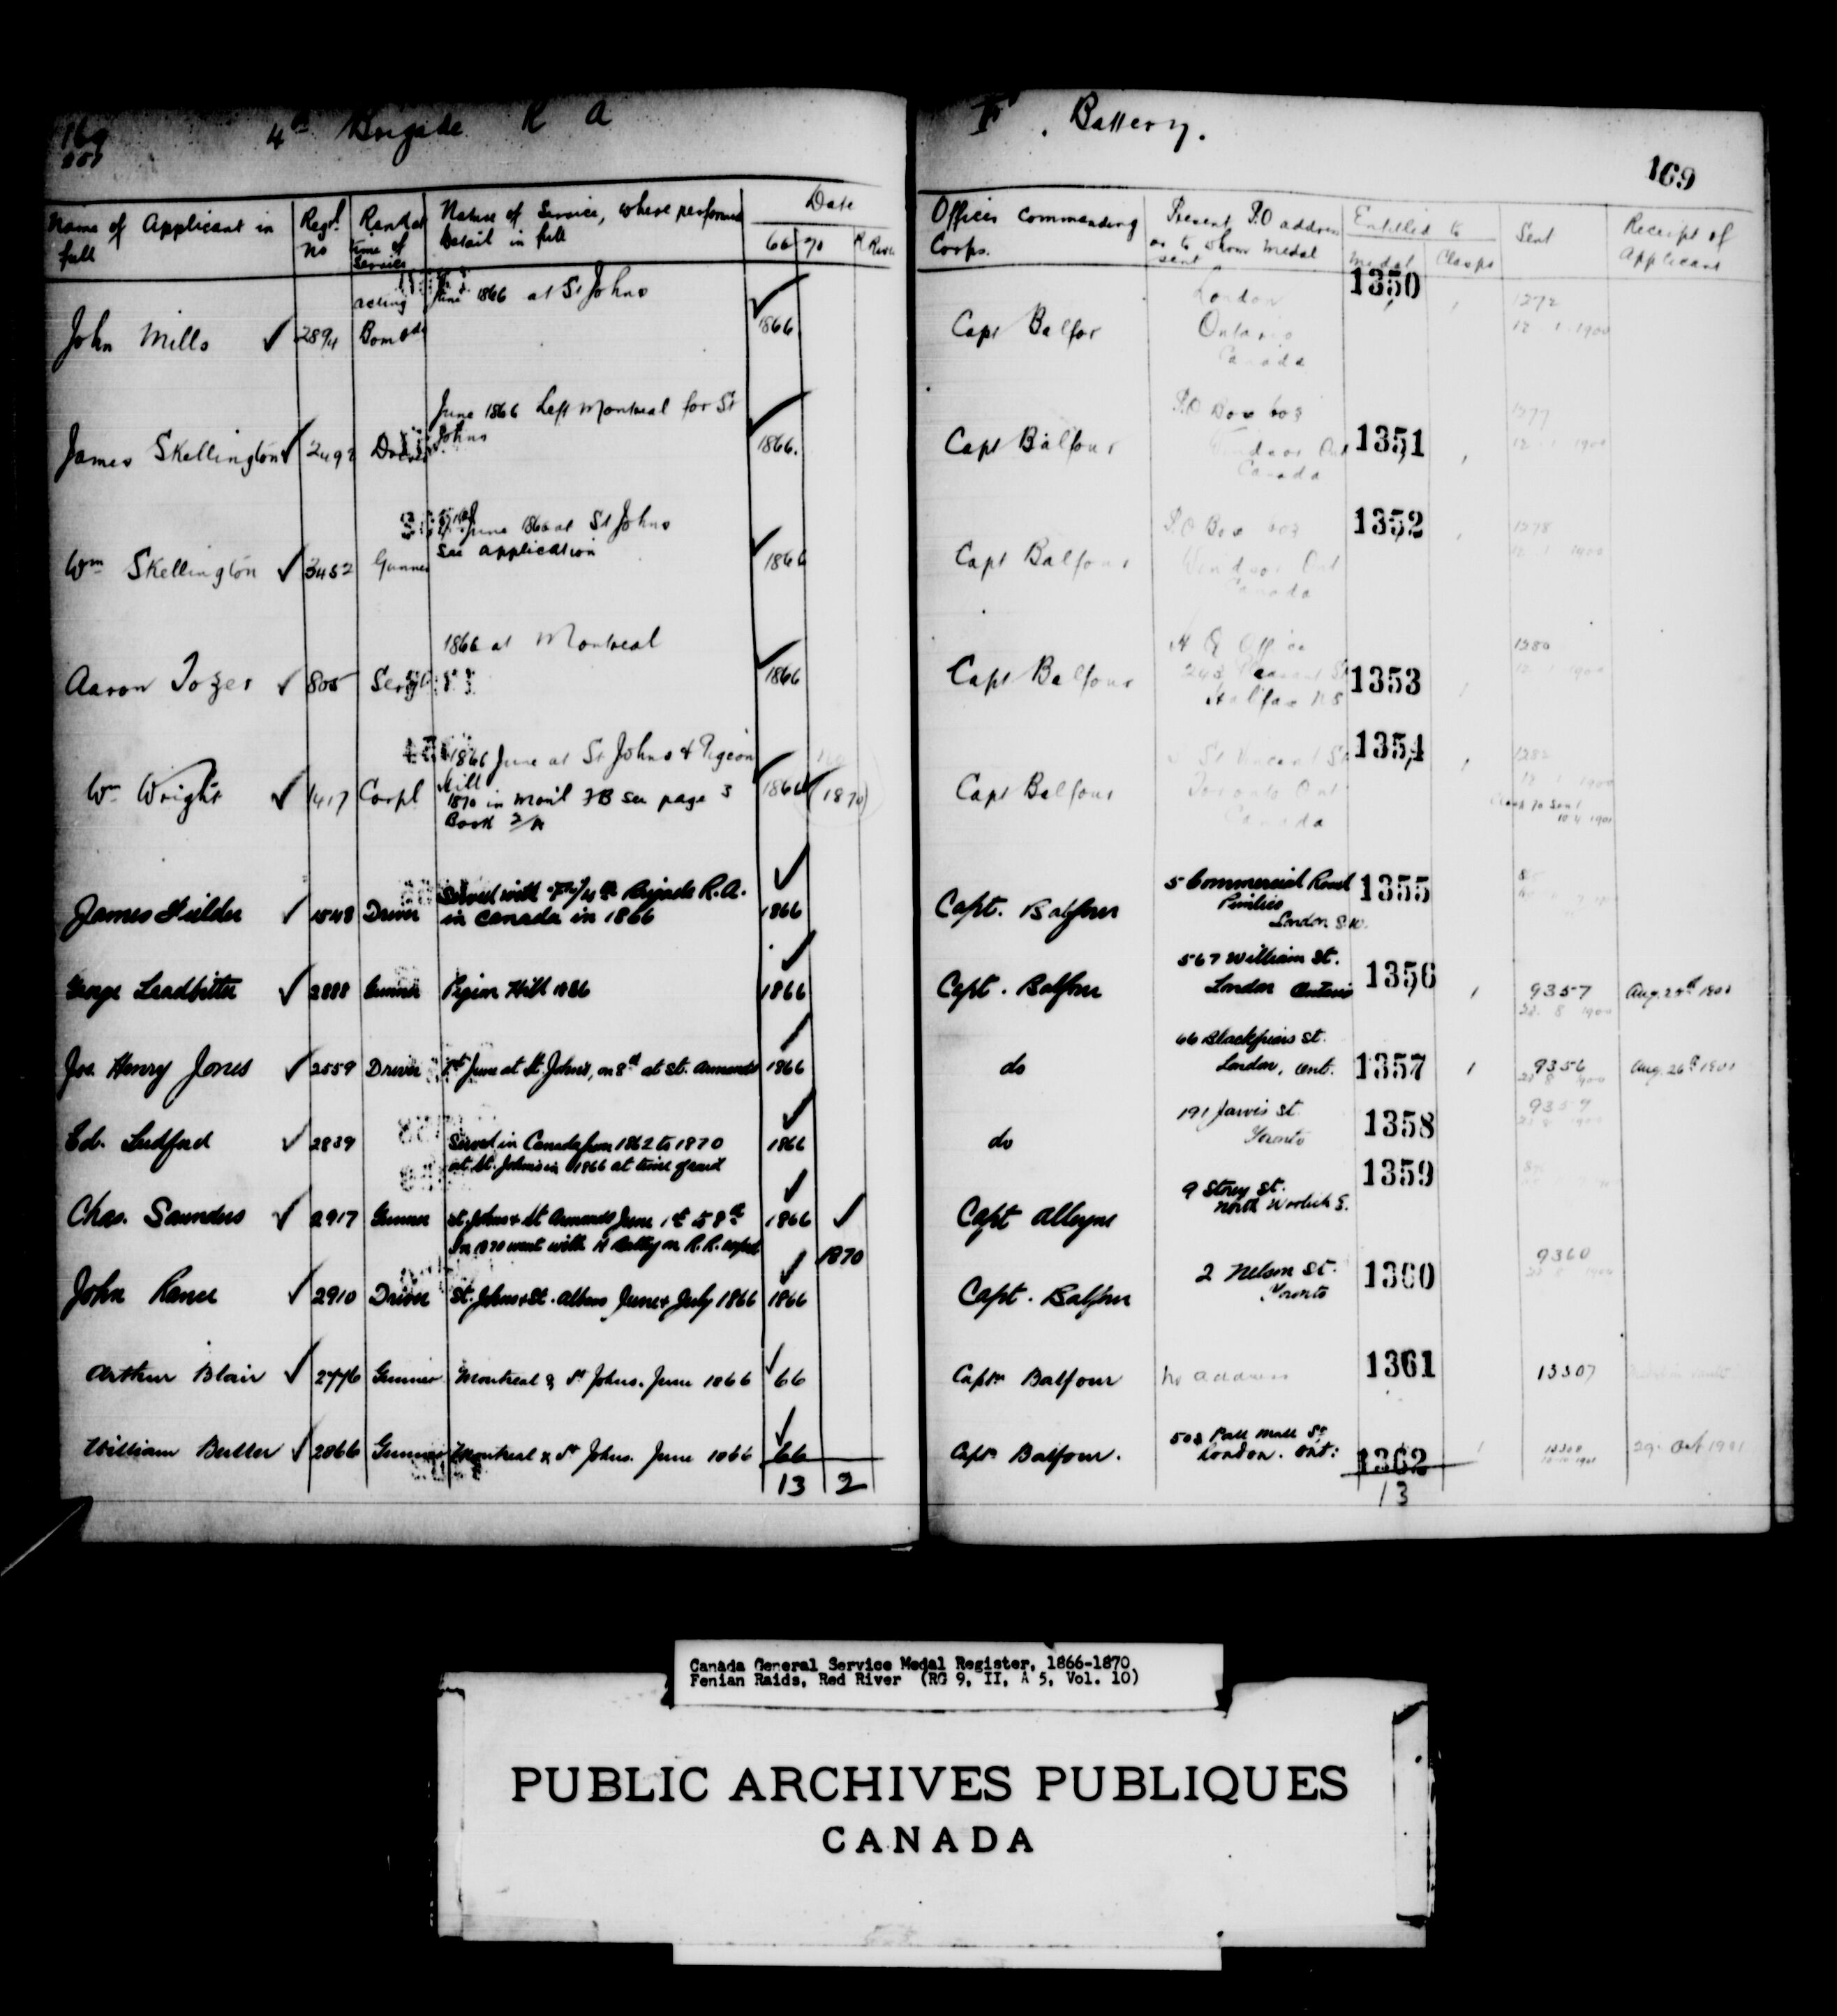 169
4th Brigade R A
F. Battery.
169
Name of Applicant in full
Regtl No
Rank at time of Service
Nature of Service, where performed Detail in full
Date
66 70 R River
Officer Commanding Corps.
Present P.O address or to whom medal sent
Entitled to
Medal Clasps
Sent
Receipt of Applicant
John Mills 2894 acting Bombdr June 1866 at St Johns 1866 Capt Balfor London Ontario Canada 1350 1272 12 1 1900
James Skellington 2492 Driver June 1866 Left Montreal for St Johns 1866. Capt Balfour P.O Box 603 Windsor Ont Canada 1351 1277 12 1 1900
Wm Skellington 3452 Gunner June 1866 at St Johns
See application 1866 Capt Balfour P.O Box 603 Windsor Ont Canada 1352 1278 12 1 1900
Aaron Tozer 805 Sergt 1866 at Montreal 1866 Capt Balfour H Q Office Pleasant St Halifax NS 1353 1280 12 1 1900
Wm Wright 1417 Corpl 1866 June at St Johns & Pigeon Hill
1870 in Mon'l FB See page 3
Book 1866 (1870) Capt Balfour St Vincent St Toronto Ont Canada 1354 1282 12 1 1900
James Fielder 1548 Driver Served with "F"/4th Brigade R.A.
in Canada in 1866 1866 Capt. Balfour 5 Commercial Road Pimlico London S.W. 1355
George Leadbitter 2888 Gunner Pigeon Hill 1866 1866 Capt. Balfour 567 William St. London Ontario 1356 1 9357 22 8 1900 Aug. 25th 1900
Jos. Henry Jones 2559 Driver 1st June at St. Johns, on 8th at St. Armands 1866 do 66 Blackfriars St. London, Ont. 1357 1 9356 22 8 1900 Aug. 26th 1900
Ed. Ludford 2839 Served in Canada from 1862 to 1870
at St. Johns in 1866 at time of raid 1866 do 191 Jarvis St. Toronto 1358 9359
Chas. Saunders 2917 Gunner St. Johns & St Armands June 1st to 8th
In 1870 went with H Batty on R. R. exped 1866 1870 Capt Alleyne 9 Storey St. North Woolwich S. 1359
John Rance 2910 Driver St. Johns & St. Albans June & July 1866 1866 Capt. Balfour 2 Nelson St. Toronto 1360 9360
Arthur Blair 2776 Gunner Montreal & St Johns. June 1866 66 Captn Balfour No address 1361 13307
William Butler 2866 Gunner Montreal & St Johns. June 1866 66 Captn Balfour. 503 Pall Mall St London. Ont: 1362 1 29 Oct 1901
13 2
13
Canada General Service Medal Register, 1866-1870
Fenian Raids, Red River (RG 9, II, A 5, Vol. 10)
PUBLIC ARCHIVES PUBLIQUES
CANADA